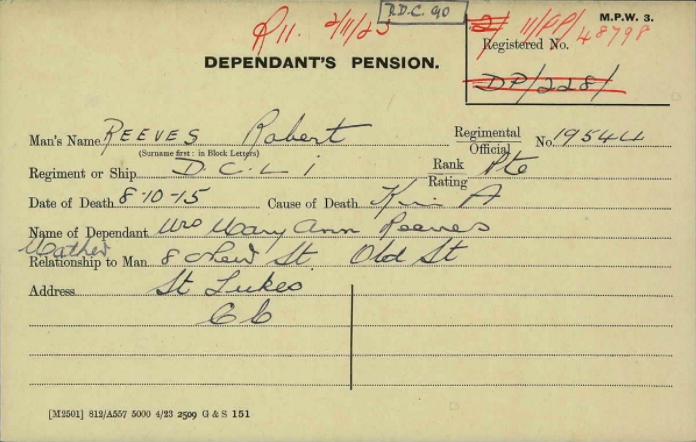 R11. 2/11/25 R.D.C. 90 M.P.W. 3.
11/PP/48798
Registered No.
DEPENDANT'S PENSION.
DP/2281
Man's Name REEVES Robert Regimental Official No. 19544
(Surname first: in Block Letters)
Regiment or Ship D.C.L I Rank Rating Pte
Date of Death 8-10-15 Cause of Death K in A
Name of Dependant Mrs Mary Ann Reeves
Mother
Relationship to Man 8 St Old St
Address St Lukes
E C
[M2501] 812/A557 5000 4/23 2509 G & S 151